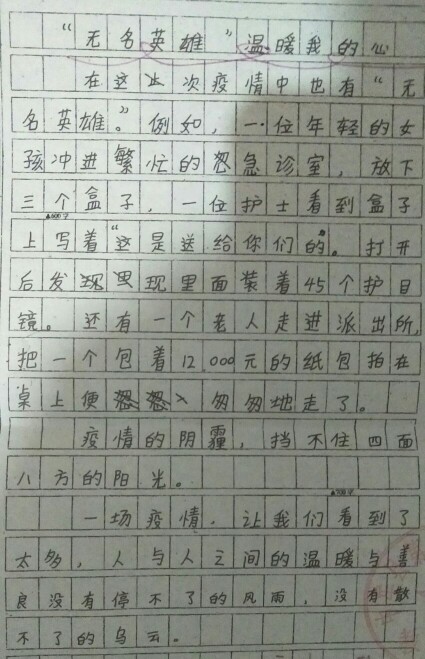 “无名英雄”温暖我的心
在这此次疫情中也有“无
名英雄”。例如，一位年轻的女
孩冲进繁忙的急诊室，放下
三个盒子，一位护士看到盒子
上写着“这是送给你们的。打开
后发现里现里面装着45个护目
镜。还有一个老人走进派出所，
把一个包着12000元的纸包拍在
桌上便匆匆地走了。
疫情的阴霾，挡不住四面
八方的阳光。
一场疫情，让我们看到了
太多，人与人之间的温暖与善
良没有停不了的风雨，没有散
不了的乌云。